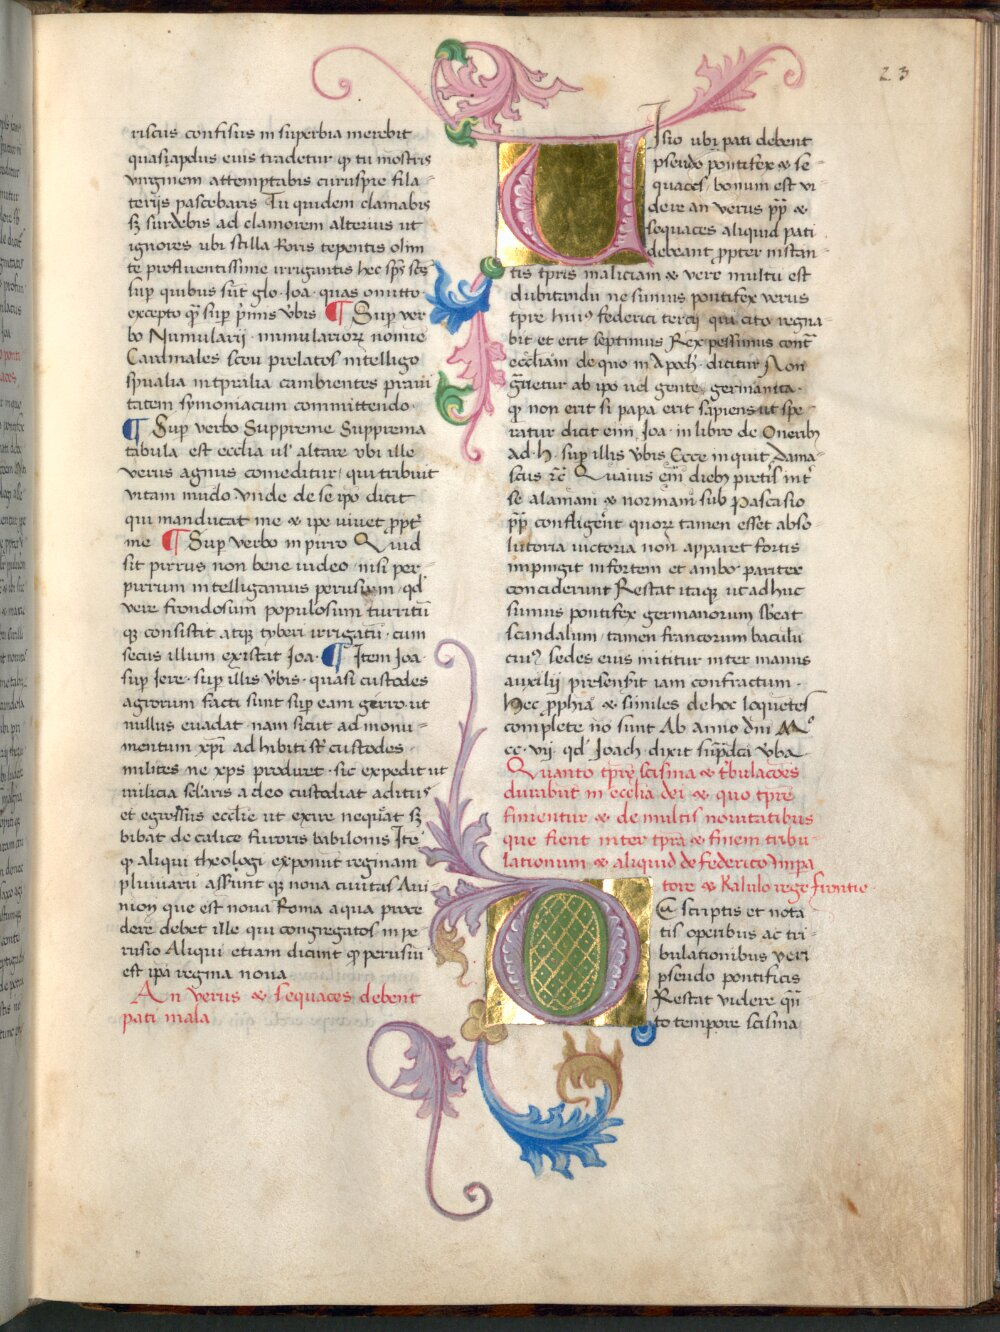 23
riscus confisus in superbia merebit
quasi apdus eius tradetur qp tu nostris
virginem attemptabis curuspie fila
terijs pascebaris Tu quidem clamabis
sz surdebis ad clamorem alterius ut
ignores ubi stilla Roris tepentis olim
te profluentissime irrigantis hec sps scs
sup quibus sut glo. Joa. quas omitto.
excepto qp sup pmis vbis ¶ Sup ver
bo Numularij. nimulariorz nomine
Cardinales seou prelatos intelligo
spualia intpralia cambientes praui
tatem symoniacum committendo.
¶ Sup verbo Suppreme Supprema
tabula est ecclia ul' altare ubi ille
verus agnus comeditur, qui tribuit
vitam mudo vnde de se ipo dicit
qui manducat me & ipe viuet ppt
me ¶ Sup verbo in pirro Quid
sit pirrus non bene video nisi per
pirrum intelligamus perusium. qd
vere frondosum populosum turritu
qz consistit atqz tyberi irrigatu. cum
secus illum existat Joa. ¶ Item Joa.
sup Jere. sup illis vbis. quasi custodes
agrorum facti sunt sup eam gerro. ut
nullus euadat. nam sicut ad monu=
mentum xpi ad hibiti st custodes.
milites ne xps produret. sic expedit ut
milicia sclaris a deo custodiat aditus
et egressus ecclie ut exire nequat sz
bibat de calice furoris babilonis Ite
qp aliqui theologi exponut reginam
pluuiaru assrint qz noua ciuitas Aui
nion que est noua Roma aqua proce
dere debet ille qui congregatos in pe
rusio Aliqui etiam dicunt qp perusiu
est ipa regina noua.
An verus & sequaces debent
pati mala
Uisio ubi pati debent
pseudo pontifex & se=
quaces bonum est vi
dere an verus pp &
sequaces aliquid pati
debeant ppter instan=
tis tpris maliciam & vere multu est
dubitandu ne sumus pontifex verus
tpre huius federici tercij qui cito regna=
bit et erit septimus Rex pessimus cont
eccliam de quo in Apoch. dicitur Non
gietur ab ipo uel gente germanica.
qp non erit si papa erit sapiens ut spe=
ratur dicit eni Joa. in libro de Oneribz
ad. h. sup illis vbis Ecce inquit Dama=
scus rc Quauis em dieb pretis int
se alamani & normani sub Pascasio
pp confligent quorz tamen esset abso=
lutoria victoria non apparet fortis
impingit in fortem et ambo pariter
conciderunt Restat itaqz ut adhuc
sumus pontifex germanorum sbeat
scandalum. tamen francorum baculu
cui9 sedes eius innititur inter manus
auxilij presensit iam confractum.
Hec pphia & similes de hoc loquetes
complete no sunt Ab anno dni Mo
cc. vij. qd Joach dixit supdca vba.
Quanto tpre scisma & tbulacoes
durabut in ecclia dei & quo tpre
finientur & de multis nouitatibus
que fient inter tpra & finem tribu
lationum & aliquid de federico Impa
tore & Kalulo rege Frantie
Descriptis et nota
tis operibus ac tri=
bulationibus veri
pseudo pontificis
Restat videre qu
to tempore scisma